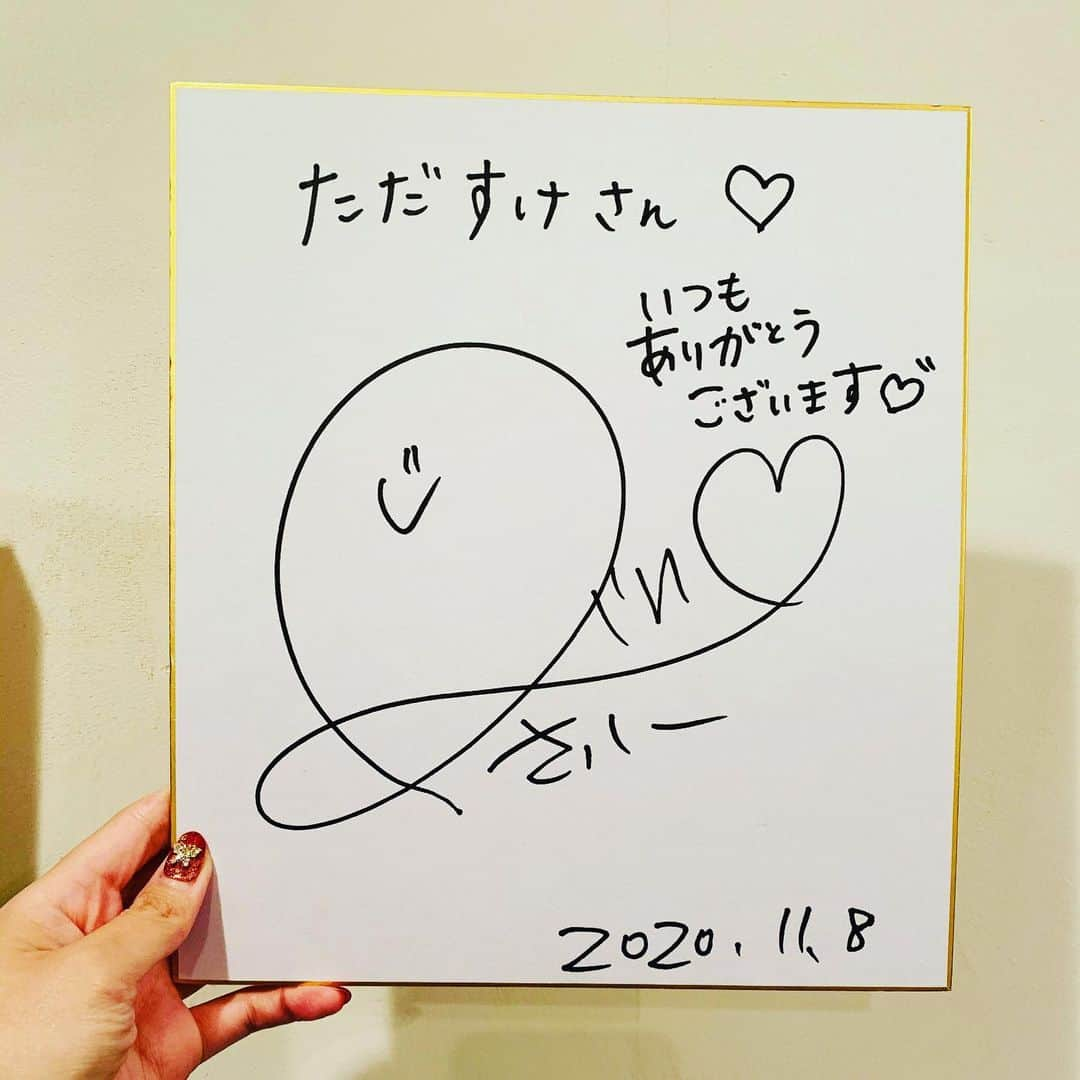 ただすけさん♡
いつも
ありがとう
ございます♡
2020.11.8